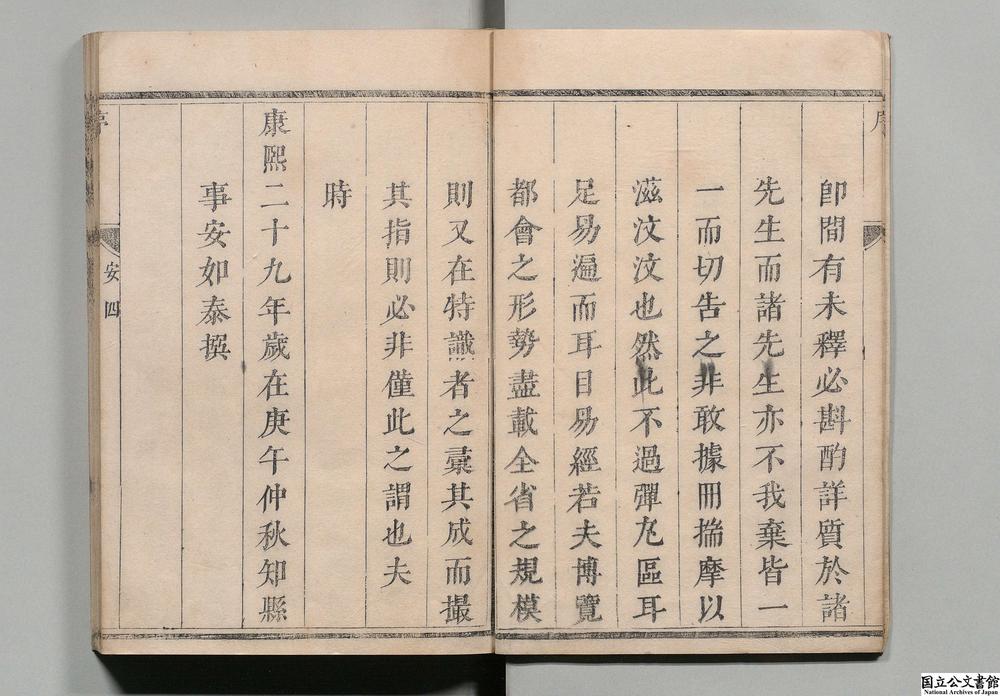 序
卽間有未釋必斟酌詳質於諸
先生而諸先生亦不我棄皆一
一而切告之非敢據冊揣摩以
滋汶汶也然此不過彈丸區耳
足易遍而耳目易經若夫博覽
都會之形勢盡載全省之規模
則又在特識者之彚其成而撮
其指則必非僅此之謂也夫
時
康熙二十九年歲在庚午仲秋知縣
事安如泰撰
序
安 四
国立公文書館
National Archives of Japan